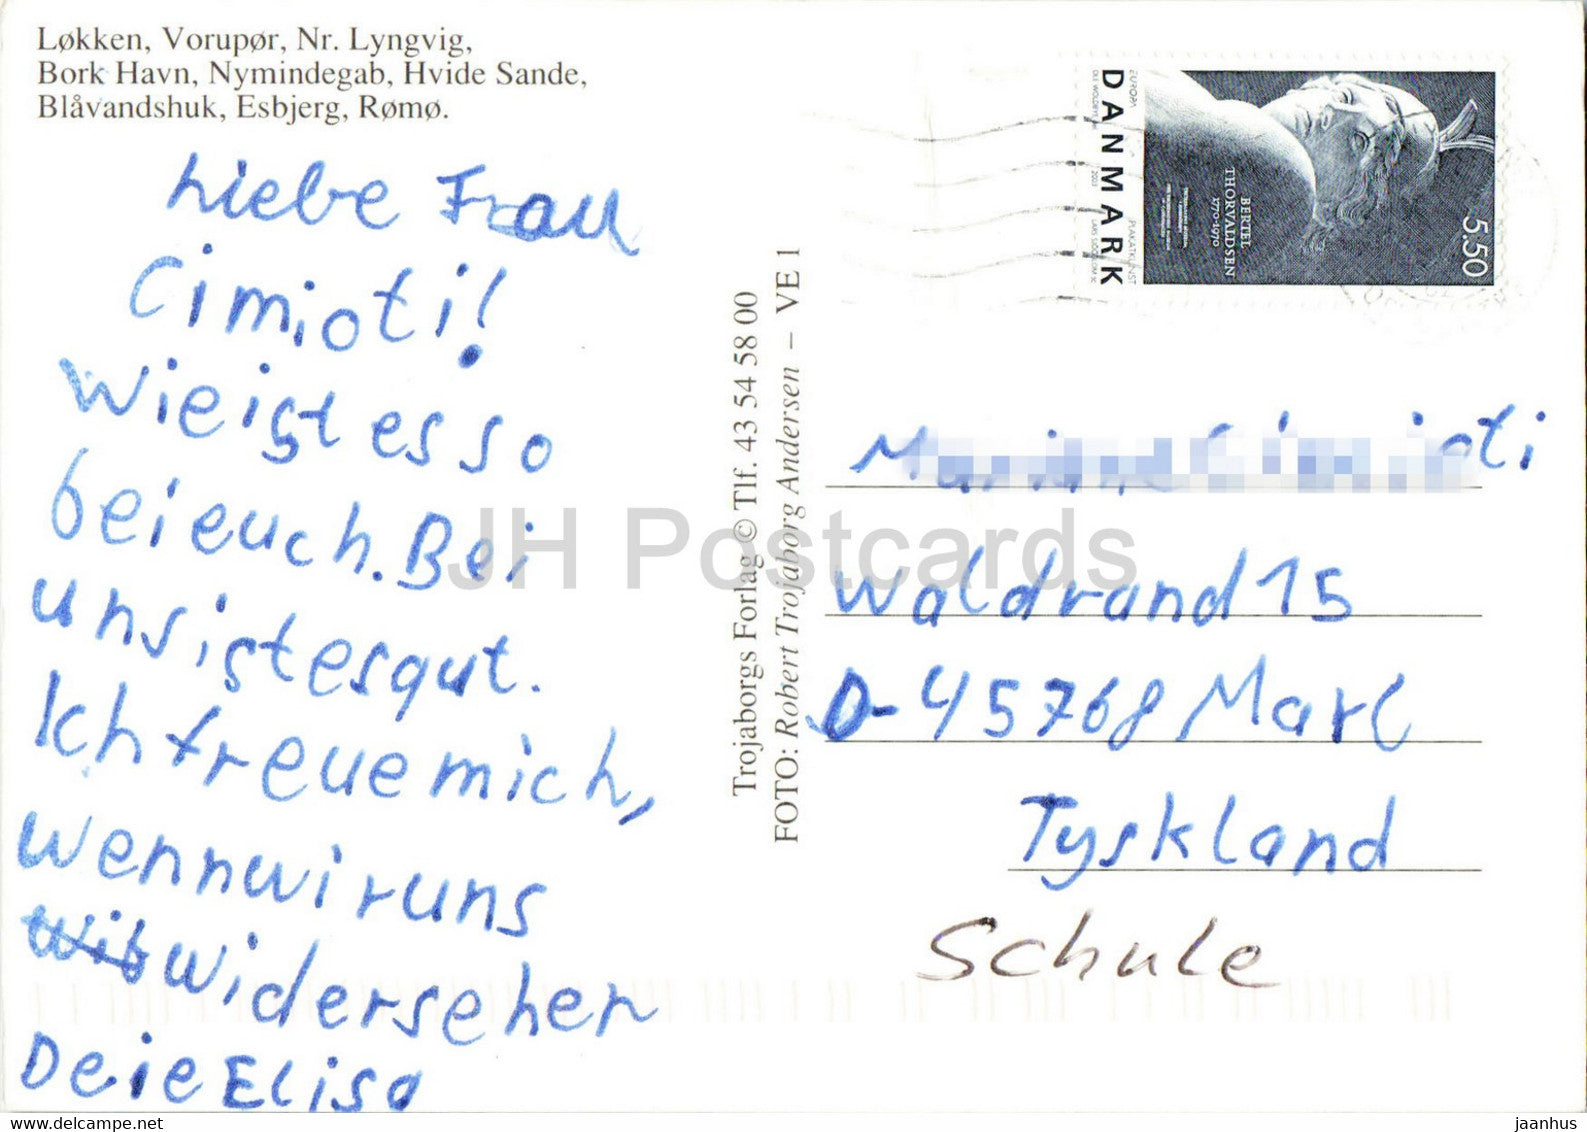 Løkken, Vorupør, Nr. Lyngvig,
Bork Havn, Nymindegab, Hvide Sande,
Blåvandshuk, Esbjerg, Rømø.
Liebe Frau
Cimioti!
Wie ist es so
bei euch. Bei
uns ist es gut.
Ich freue mich,
wenn wir uns
widersehen
Deie Elisa
Trojaborgs Forlag © Tlf. 43 54 58 00
FOTO: Robert Trojaborg Andersen – VE 1
DANMARK
EUROPA
2003
PLAKATKUNST
BERTEL
THORVALDSEN
1770-1970
5.50
Waldrand 15
D-45768 Marl
Tyskland
Schule
JH Postcards
www.delcampe.net
jaanhus